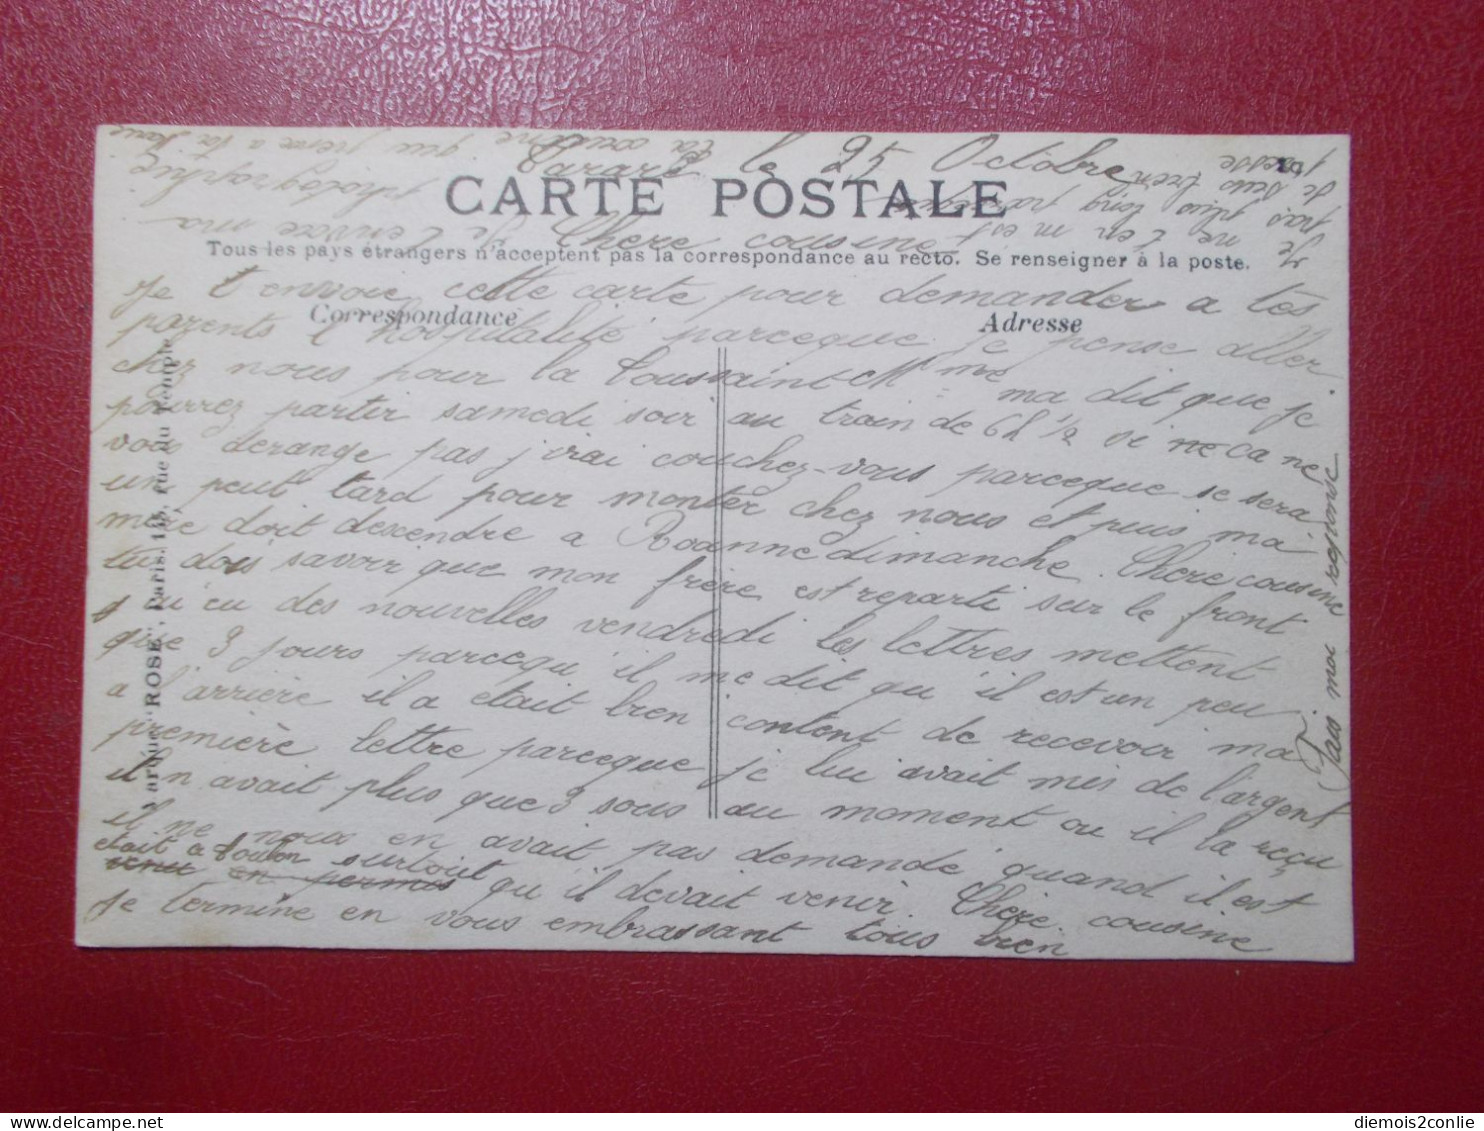 le 25 Octobre 19
CARTE POSTALE
Chere cousine
Tous les pays étrangers n'acceptent pas la correspondance au recto. Se renseigner à la poste.
Je t envoie cette carte pour demander a tes
Correspondance
Adresse
parents l hospitalité parceque je pense aller
chez nous pour la Toussaint Mme ma dit que je
pourrez partir samedi soir au train de 6h 1/2 si ne ca ne
vous derange pas j irai couchez-vous parceque se sera
un peut tard pour monter chez nous et puis ma
mère doit descendre a Roanne dimanche. Chere cousine
tu dois savoir que mon frère est reparti sur le front
j ai eu des nouvelles vendredi les lettres mettent
que 3 jours parcequ il me dit qu il est un peu
a l arrière il a etait bien content de recevoir ma
première lettre parceque je lui avait mis de l'argent
il n avait plus que 3 sous au moment ou il la reçu
il ne nous en avait pas demandé quand il est
etait a Toulon surtout qu il devait venir. Chère cousine
venir en permis
je termine en vous embrassant tous bien
Fais moi reponse
Je t'envoie ma
photographie
la cousine qui pense a toi
Marque "ROSE", Paris. rue du Temple